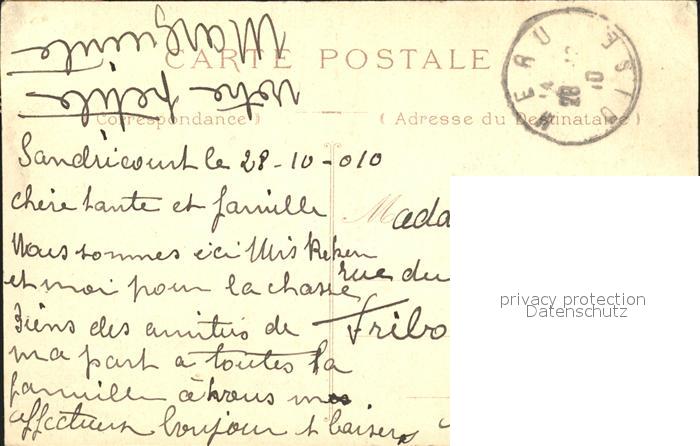 CARTE POSTALE
(Correspondance)
(Adresse du Destinataire)
MERU
OISE
28
10
Sandricourt le 28-10-010
chère tante et famille
Nous sommes ici Mis
et moi pour la chasse
Fiens des amitiés de
ma part a toutes la
famille à vous mes
affectueux bonjour & baisers
votre petite
Marguerite
Mada
rue du
Fribo
privacy protection
Datenschutz